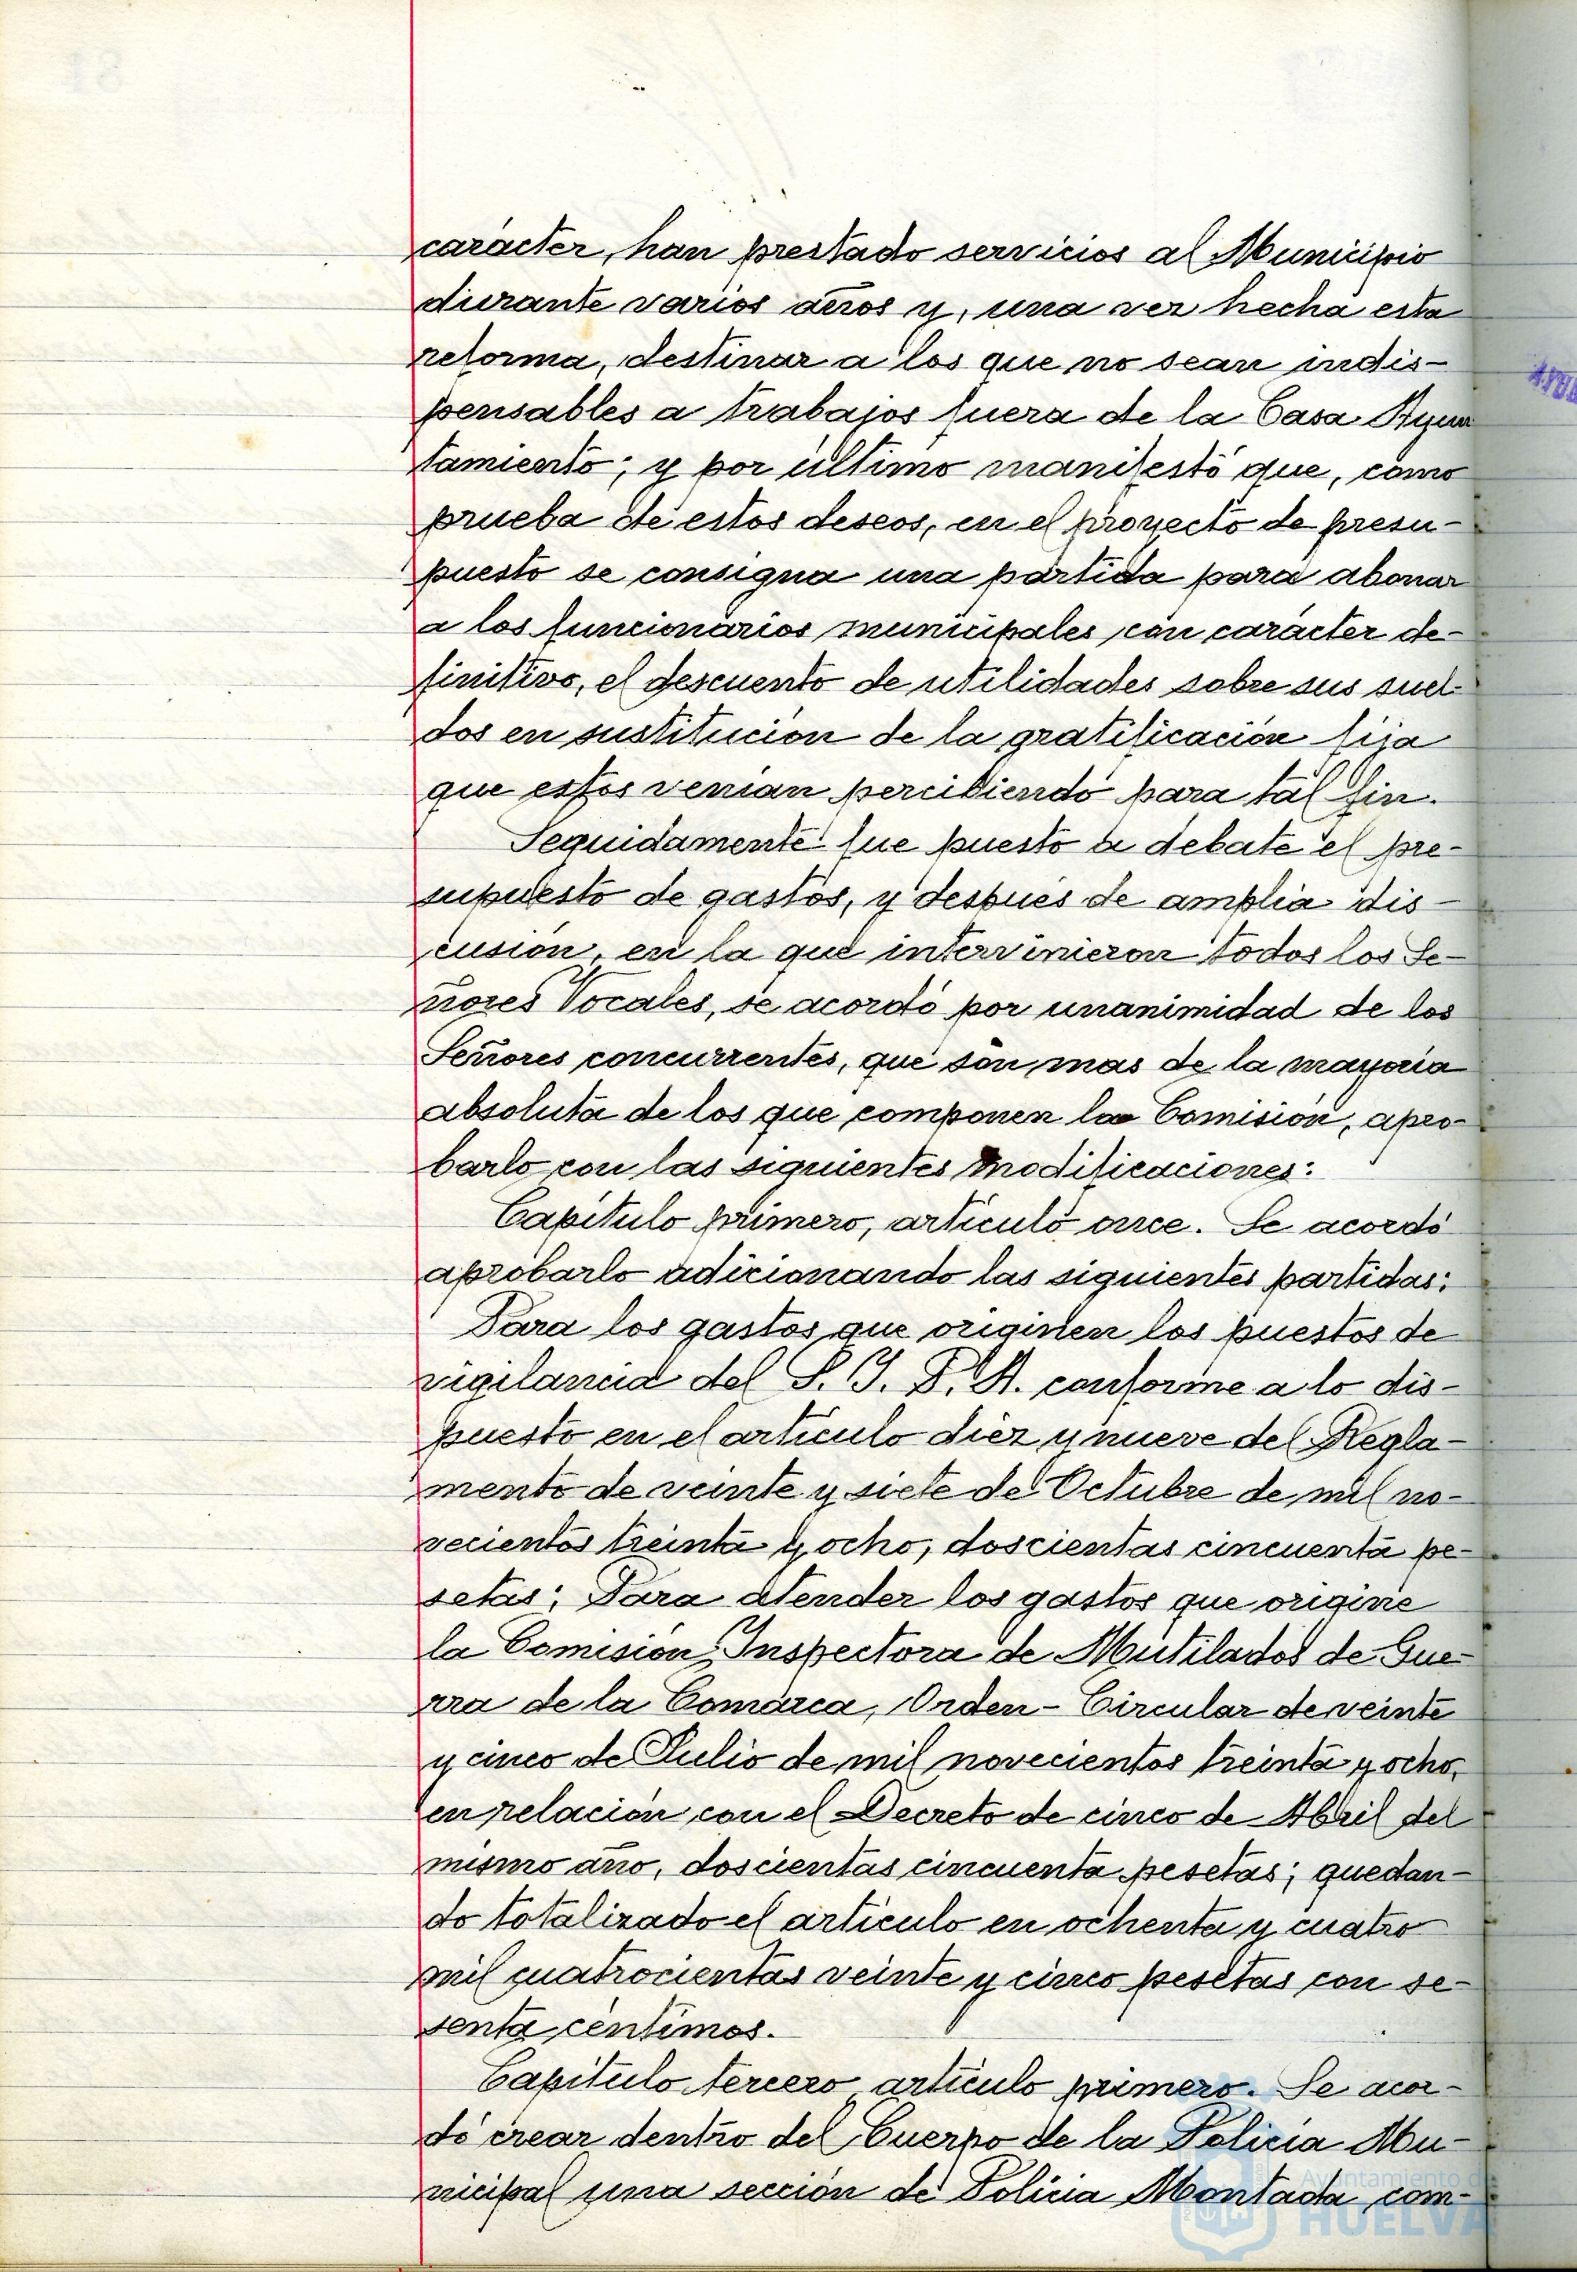 carácter, han prestado servicios al Municipio
durante varios años y, una vez hecha esta
reforma, destinar a los que no sean indis-
pensables a trabajos fuera de la Casa Ayun
tamiento; y por último manifestó que, como
prueba de estos deseos, en el proyecto de presu-
puesto se consigna una partida para abonar
a los funcionarios municipales con carácter de-
finitivo, el descuento de utilidades sobre sus suel-
dos en sustitución de la gratificación fija
que estos venían percibiendo para tal fin.
Seguidamente fue puesto a debate el pre-
supuesto de gastos, y después de amplia dis-
cusión, en la que intervinieron todos los Se-
ñores Vocales, se acordó por unanimidad de los
Señores concurrentes, que son mas de la mayoría
absoluta de los que componen la Comisión, apro-
barlo con las siguientes modificaciones:
Capítulo primero, artículo once. Se acordó
aprobarlo adicionando las siguientes partidas:
Para los gastos que originen los puestos de
vigilancia del S. I. P. A. conforme a lo dis-
puesto en el artículo diez y nueve del Regla-
mento de veinte y siete de Octubre de mil no-
vecientos treinta y ocho, doscientas cincuenta pe-
setas; Para atender los gastos que origine
la Comisión Inspectora de Mutilados de Gue-
rra de la Comarca, Orden-Circular de veinte
y cinco de Julio de mil novecientos treinta y ocho,
en relación con el Decreto de cinco de Abril del
mismo año, doscientas cincuenta pesetas; quedan-
do totalizado el artículo en ochenta y cuatro
mil cuatrocientas veinte y cinco pesetas con se-
senta céntimos.
Capítulo tercero, artículo primero. Se acor-
dó crear dentro del Cuerpo de la Policía Mu-
nicipal una sección de Policía Montada, com-
Ayuntamiento de
HUELVA